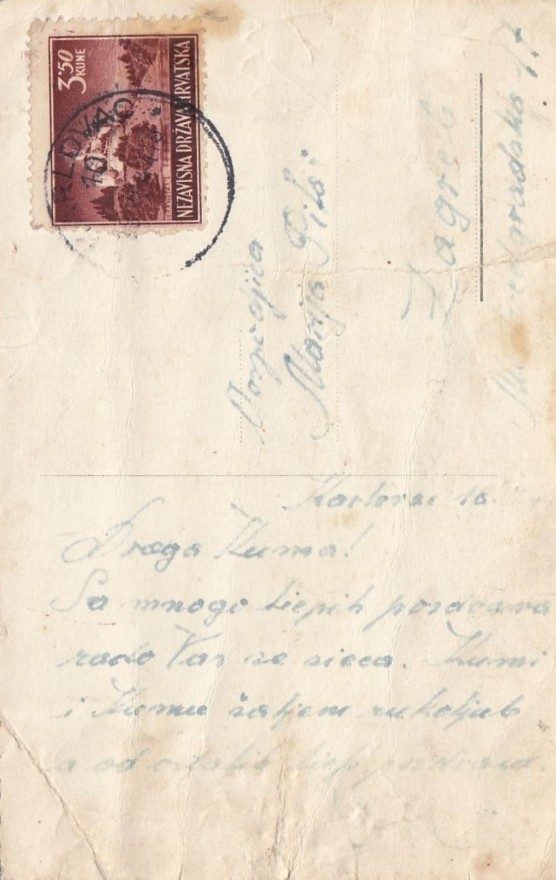 3'50
KUNE
NEZAVISNA DRŽAVA HRVATSKA
10
Gospodjica
Marija
Zagreb
Karlovac 10.
Draga Kuma!
Sa mnogo liepih pozdrava
rado Vas se sieca. Kumi
i Kumu šaljem rukoljub
a od ostalih liep pozdrav.